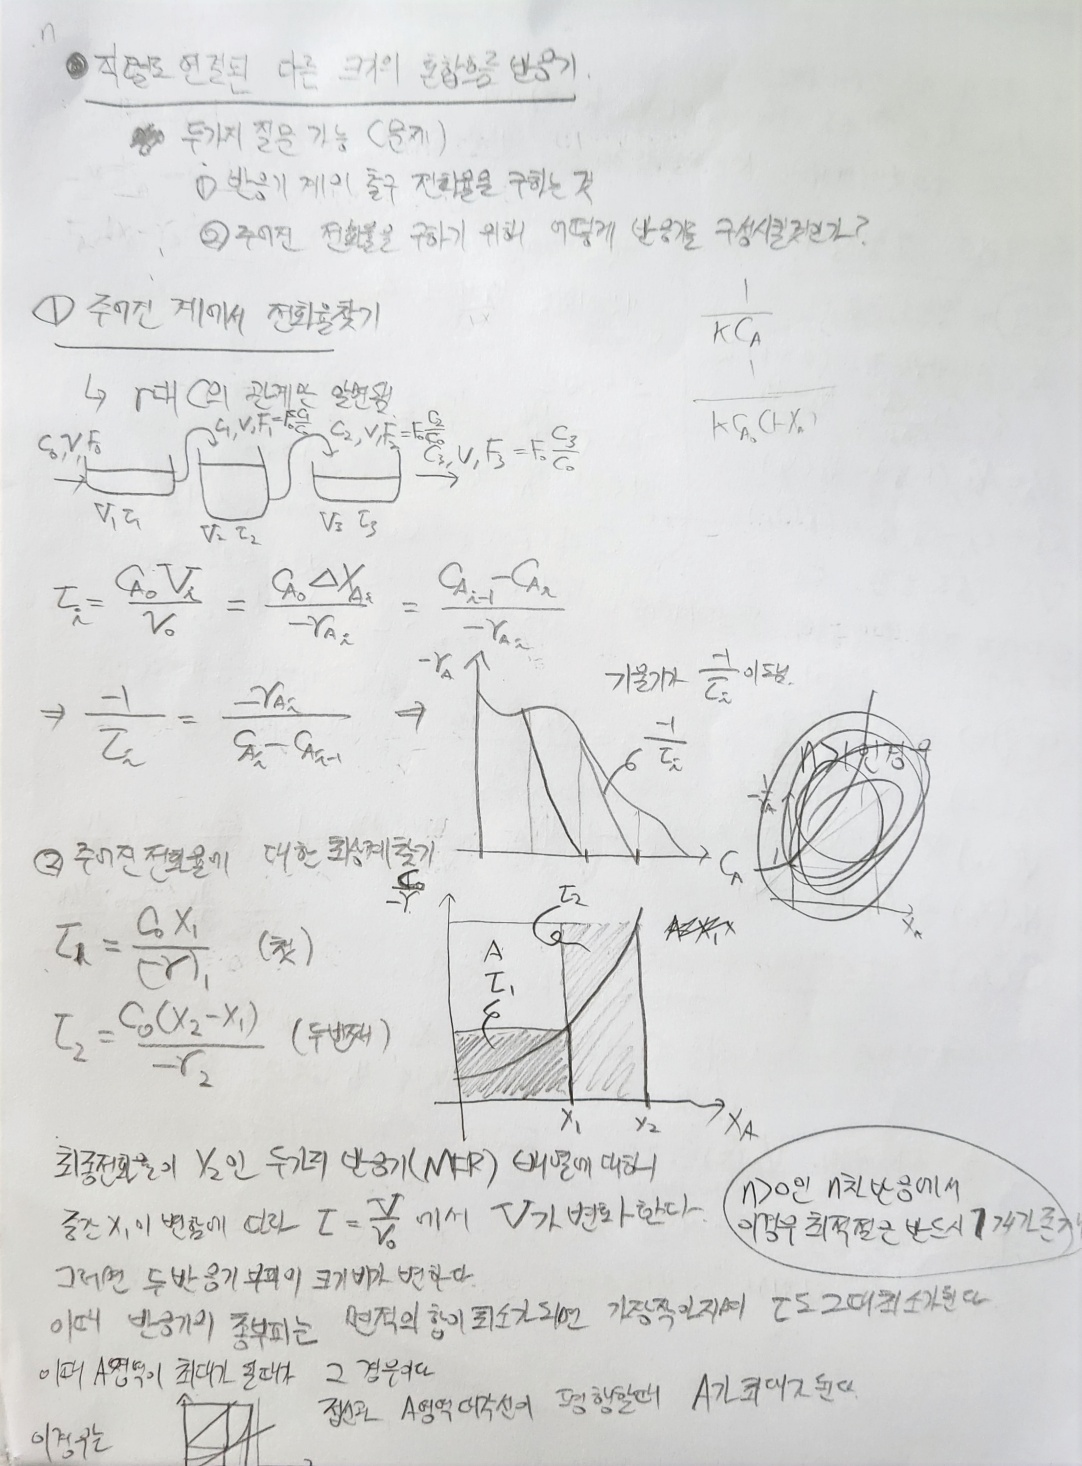 직렬로 연결된 다른 크기의 혼합흐름 반응기.
두가지 질문 가능 (문제)
① 반응기 계의 출구 전화율을 구하는 것
② 주어진 전화율을 구하기 위해 어떻게 반응기를 구성시킬것인가?
① 주어진 계에서 전화율찾기
1/(kC_A)
1/(kC_A₀(1-X_A))
↳ r대 C의 관계만 알면됨
C₀, V, F₀
C₁, V, F₁ = F₀ C₁/C₀
C₂, V, F₂ = F₀ C₂/C₀
C₃, V, F₃ = F₀ C₃/C₀
V₁ τ₁
V₂ τ₂
V₃ τ₃
τ_i = C_A₀V_i/V₀ = C_A₀ΔX_Ai/-r_Ai = (C_Ai-1 - C_Ai)/-r_Ai
⇒ -1/τ_i = -r_Ai/(C_Ai - C_Ai-1) ⇒
-r_A
기울기가 -1/τ_i 이 됨.
-1/τ_i
C_A
X_A
② 주어진 전화율에 대한 최상계 찾기
τ₁ = C₀X₁/(-r)₁ (첫)
τ₂ = C₀(X₂-X₁)/-r₂ (두번째)
C₀/-r
τ₂
A
τ₁
X₁
X₂
X_A
최종전화율이 X₂인 두개의 반응기(MFR) 배열에 대하여
중간 X₁이 변함에 따라 τ = V/V₀ 에서 V가 변화한다.
n>0인 n차 반응에서
이경우 최적점은 반드시 1개가 존재
그러면 두 반응기 부피의 크기비가 변한다.
이때 반응기의 총부피는 면적의 합이 최소가 되면 가장작아지며 τ도 그때 최소가된다
이때 A영역이 최대가 될때가 그 경우이다
접선과 A영역 대각선이 평행할때 A가 최대가 된다
이경우는